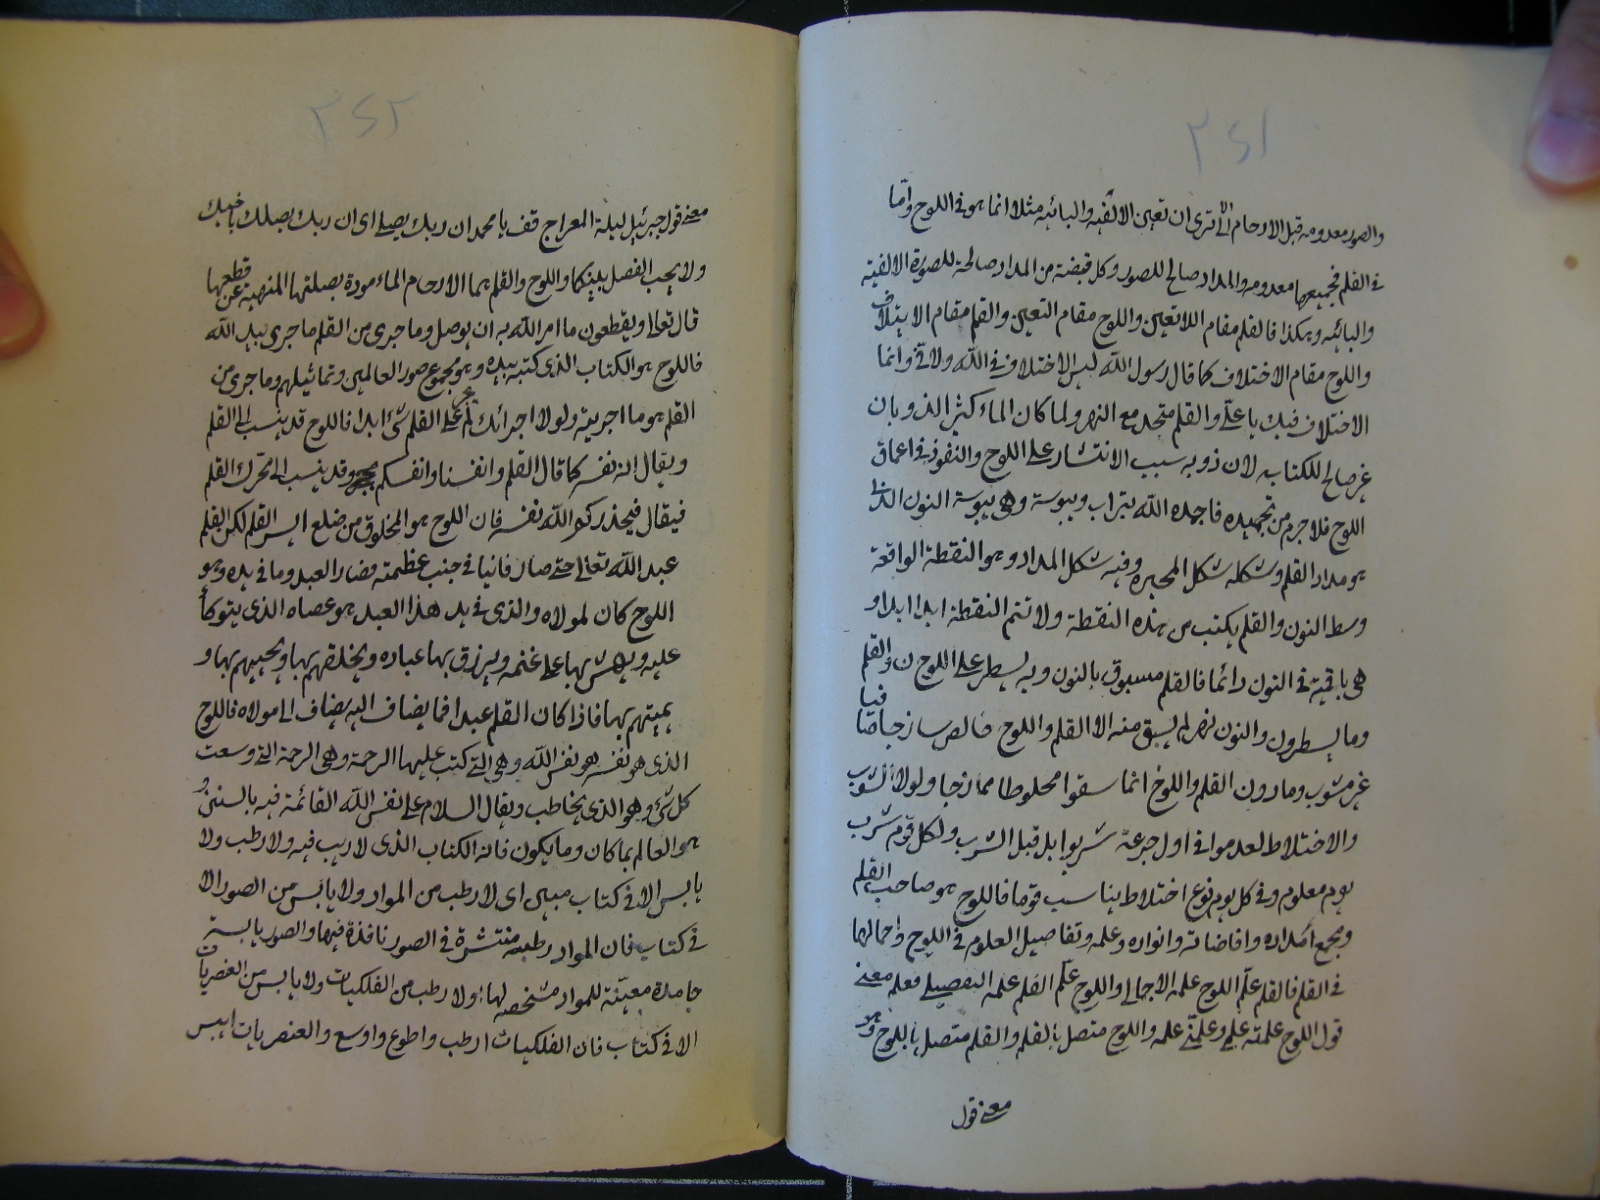 ٢٤١
والصور معدومه قبل الارحام الا ترى ان تعين الالفيه والبائيه مثلا انما هو فى اللوح واما
فى القلم فجميعها معدومه والمداد صالح للصور وكل قبضة من المداد صالحة للصورة الالفية
والبائيه وهكذا فالقلم مقام اللاتعين واللوح مقام التعين والقلم مقام الايتلاف
واللوح مقام الاختلاف كما قال رسول الله ليس الاختلاف فى الله ولا فىّ وانما
الاختلاف فيك يا على والقلم متحد مع النهر ولما كان الماء كثير الذوبان
غير صالح للكتابه لان ذوبه سبب الانتشار على اللوح والنفوذ فى اعماق
اللوح فلاجرم من تجميده فاجمده الله بتراب ويبوسة وهى يبوسة النون الذى
هو مداد القلم وشكله شكل المحبره وفيه شكل المداد وهو النقطة الواقعة
وسط النون والقلم يكتب من هذه النقطة ولا تتم النقطة ابدا ابدا و
هى باقية فى النون دائما فالقلم مسبوق بالنون وبه يسطر على اللوح ن والقلم
وما يسطرون والنون نهر لم يسبق منه الا القلم واللوح فيا خالص سازجا صافيا
غير مشوب وما دون القلم واللوح انما سقوا مخلوطا ممازجا ولولا الشوب
والاختلاط لعدموا فى اول جرعة شربوا بل قبل الشرب ولكل قوم شرب
يوم معلوم وفى كل يوم نوع اختلاط يناسب قوما فاللوح هو صاحب القلم
ومجمع امداده وافاضاته وانواره وعلمه وتفاصيل العلوم فى اللوح واجمالها
فى القلم فالقلم علّم اللوح علمه الاجمالى واللوح علّم القلم علمه التفصيلى فعلم معنى
قول اللوح علمته علمى وعلمنى علمه واللوح متصل بالقلم والقلم متصل باللوح وهو
معنى قول
٢٤٢
معنى قول جبرئيل ليلة المعراج قف يا محمد ان ربك يصلى اى ان ربك يصلك باخيك
ولا يحب الفصل بينكما واللوح والقلم هما الارحام الماءمورة بصلتها المنهية عن قطعها
قال تعالى ويقطعون ما امر الله به ان يوصل وما جرى من القلم ما جرى بيد الله
فاللوح هو الكتاب الذى كتبه بيده وهو مجموع صور العالمين وتماثيلهم وما جرى من
القلم هو ما اجريته ولولا اجرائك لم يجر على القلم شئ ابدا فاللوح قد ينسب الى القلم
ويقال انه نفسه كما قال القلم وانفسنا وانفسكم وقد ينسب الى محرك القلم
فيقال فيحذركم الله نفسه فان اللوح هو المخلوق من ضلع ايسر القلم لكن القلم
عبد الله تعالى حتى صار فانيا فى جنب عظمته فصار العبد وما فى يده وهو
اللوح كان لمولاه والذى فى يد هذا العبد هو عصاه الذى يتوكأ
عليه ويهش بها على غنمه ويرزق بها عباده ويخلقهم بها ويحييهم بها و
يميتهم بها فاذا كان القلم عبدا فما يضاف اليه يضاف الى مولاه فاللوح
الذى هو نفسه هو نفس الله وهى التى كتب عليها الرحمة وهى الرحمة التى وسعت
كل شئ وهو الذى يخاطب ويقال السلام على نفس الله القائمة فيه بالسنن
هو العالم بما كان وما يكون فانه الكتاب الذى لا ريب فيه ولا رطب ولا
يابس الا فى كتاب مبين اى لا رطب من المواد ولا يابس من الصور الا
فى كتاب فان المواد رطبه منتشرة فى الصور نافذة فيها والصور يابسة
جامدة معينة للمواد مشخصه لها اولا رطب من الفلكيات ولا يابس من العنصريات
الا فى كتاب فان الفلكيات ارطب واطوع واوسع والعنصريات ايبس